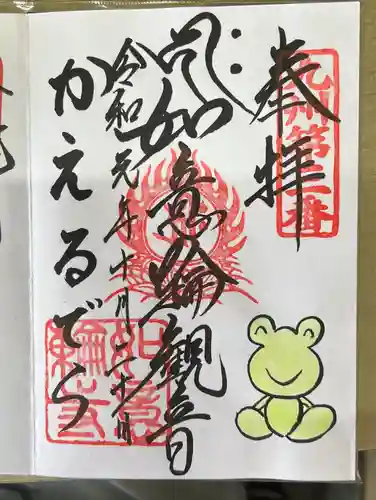 奉拝
九州第三番
如意輪観音
令和元年十月二十日
かえるでら
如意輪寺